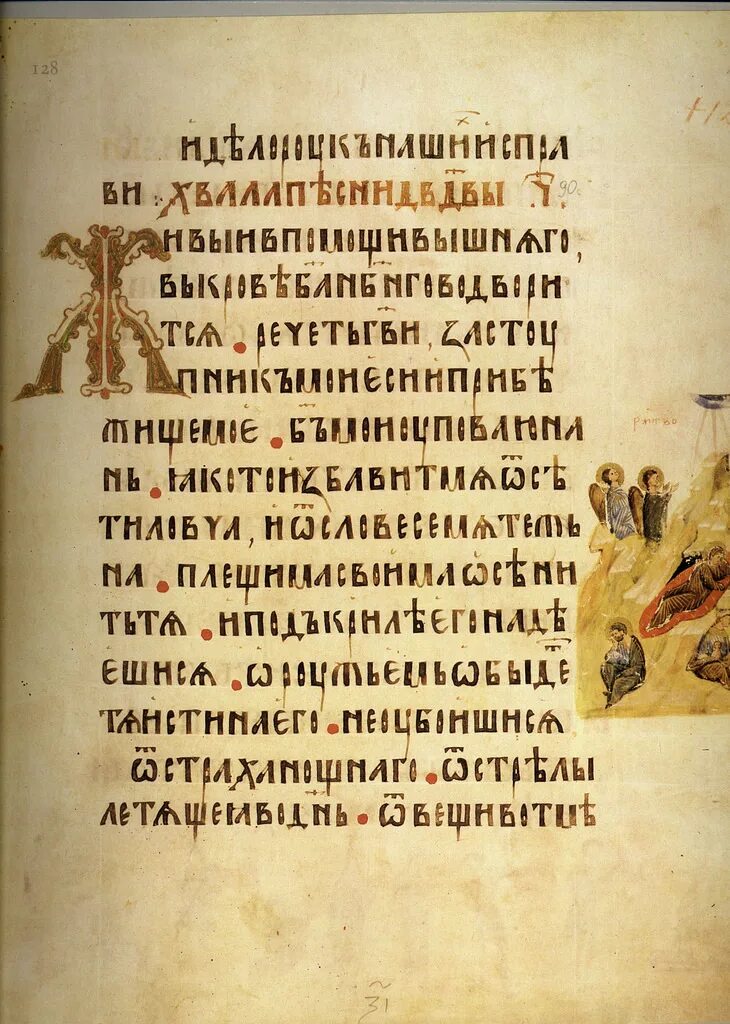 128
и дѣло роукъ нашихъ исправ
ви · хвала пѣсни дв҃двы ч҃ 90.
Живыи в помощи вышнѧго,
вы кровѣ бл҃и бн҃го водвори
тсѧ . речеть гв҃и, застоу
пник мои еси и прибѣ
жище мое . бъ҃ мои оуповаю на
нь . ꙗко тои избавит мѧ ѿ сѣ
ти ловча, и ѿ словесе мѧтежь
на . плещима своима ѡсѣни
тьтѧ . и подъ крилѣ его надѣ
ешисѧ . ѡроужьемь ѡбыде
тѧ истина его . не оубоишисѧ
ѿ страха нощнаго . ѿ стрѣлы
летѧщеꙗ во дн҃ь . ѿ вещи во тмѣ
рж҃тво